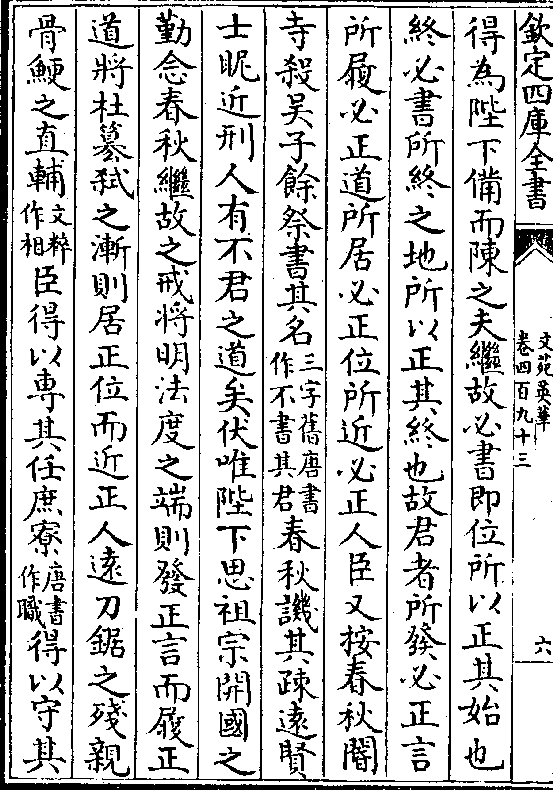 欽定四庫全書
文苑英華
卷四百九十三
六
得為陛下備而陳之夫繼故必書即位所以正其始也
終必書所終之地所以正其終也故君者所發必正言
所履必正道所居必正位所近必正人臣又按春秋閽
寺殺吴子餘祭書其名三字舊唐書作不書其君春秋譏其疎遠賢
士昵近刑人有不君之道矣伏唯陛下思祖宗開國之
勤念春秋繼故之戒將明法度之端則發正言而履正
道將杜簒弑之漸則居正位而近正人逺刀鋸之殘親
骨鯁之直輔文粹作相臣得以専其任庶寮唐書作職得以守其